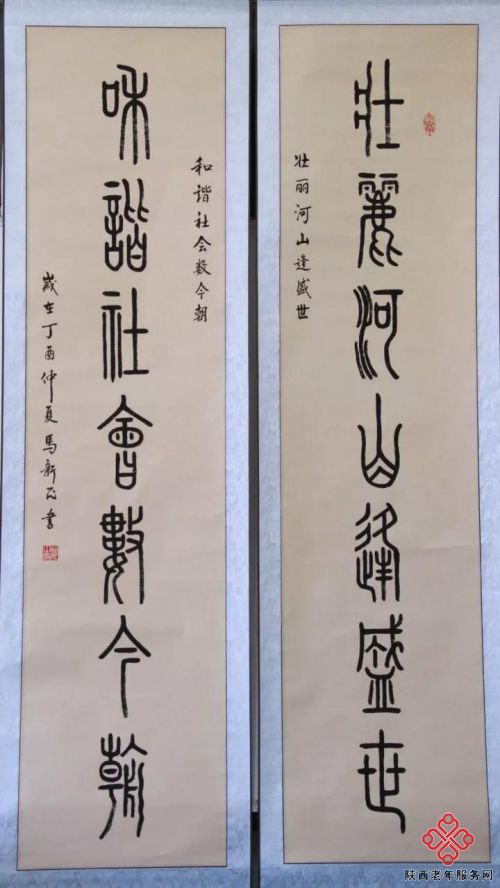 壯麗河山逢盛世
壮丽河山逢盛世
和諧社會數今朝
和谐社会数今朝
歲在丁酉仲夏馬新民書
陕西老年服务网